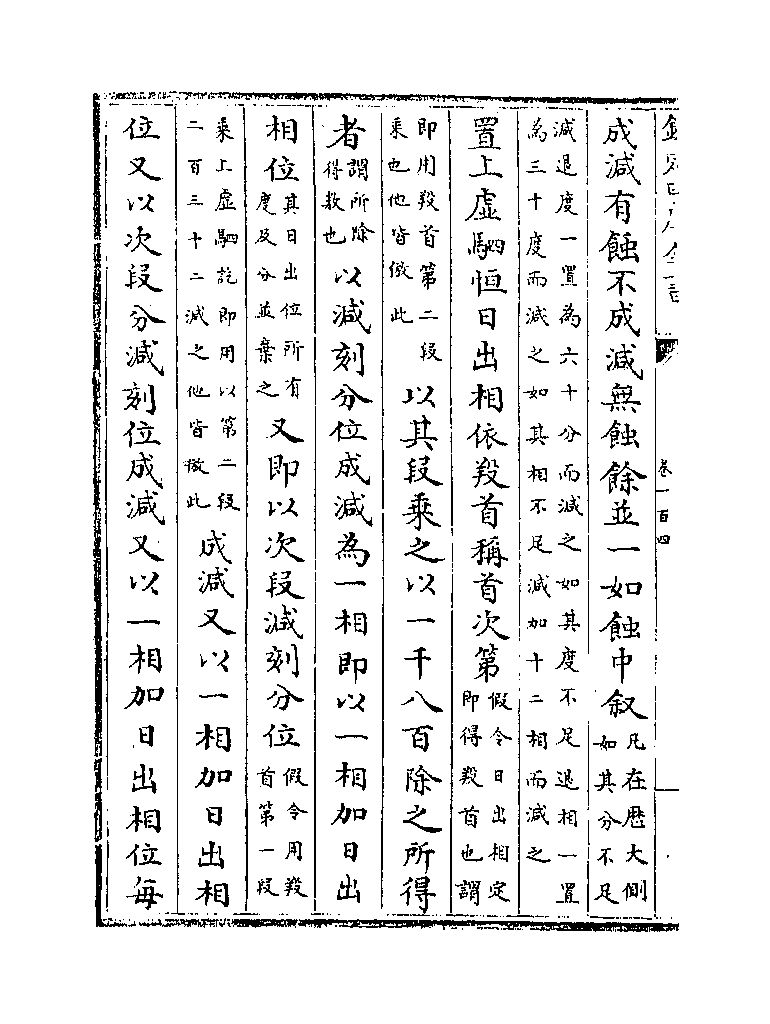 欽定四庫全書
卷一百四
成減有蝕不成減無蝕餘並一如蝕中叙凡在厯大側如其分不足
減退度一置為六十分而減之如其度不足退相一置為三十度而減之如其相不足減加十二相而減之
置上虚駟恒日出相依㲉首稱首次第假令日出相定即得㲉首也謂
即用㲉首第二段乗也他皆倣此以其段乗之以一千八百除之所得
者謂所除得數也以減刻分位成減為一相即以一相加日出
相位其日出位所有度及分並棄之又即以次段減刻分位假令用㲉首第一段
乗上虚駟訖即用以第二段二百三十二減之他皆倣此成減又以一相加日出相
位又以次段分減刻位成減又以一相加日出相位毎